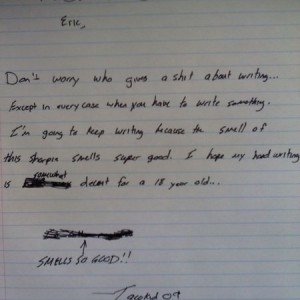 Eric,
Don't worry who gives a shit about writing...
Except in every case when you have to write something.
I'm going to keep writing because the smell of
this sharpie smells super good. I hope my hand writing
somewhat
is decent for a 18 year old...
SMELLS SO GOOD!!